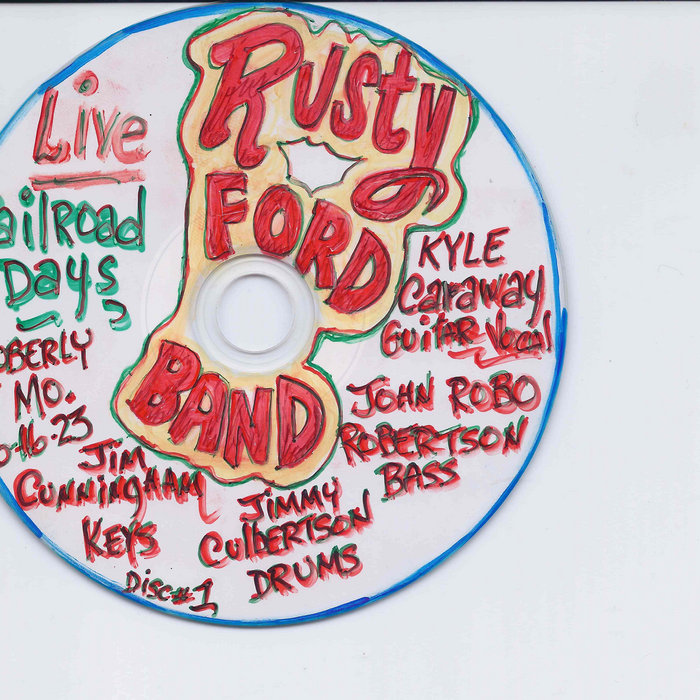 Rusty
FORD
BAND
Live
ailRoad
Days
OBERLY
MO.
16-23
Jim
Cunningham
Keys
Jimmy
Culbertson
DRUMS
Disc#1
KYLE
Caraway
Guitar Vocal
JOHN ROBO
ROBERTSON
BASS